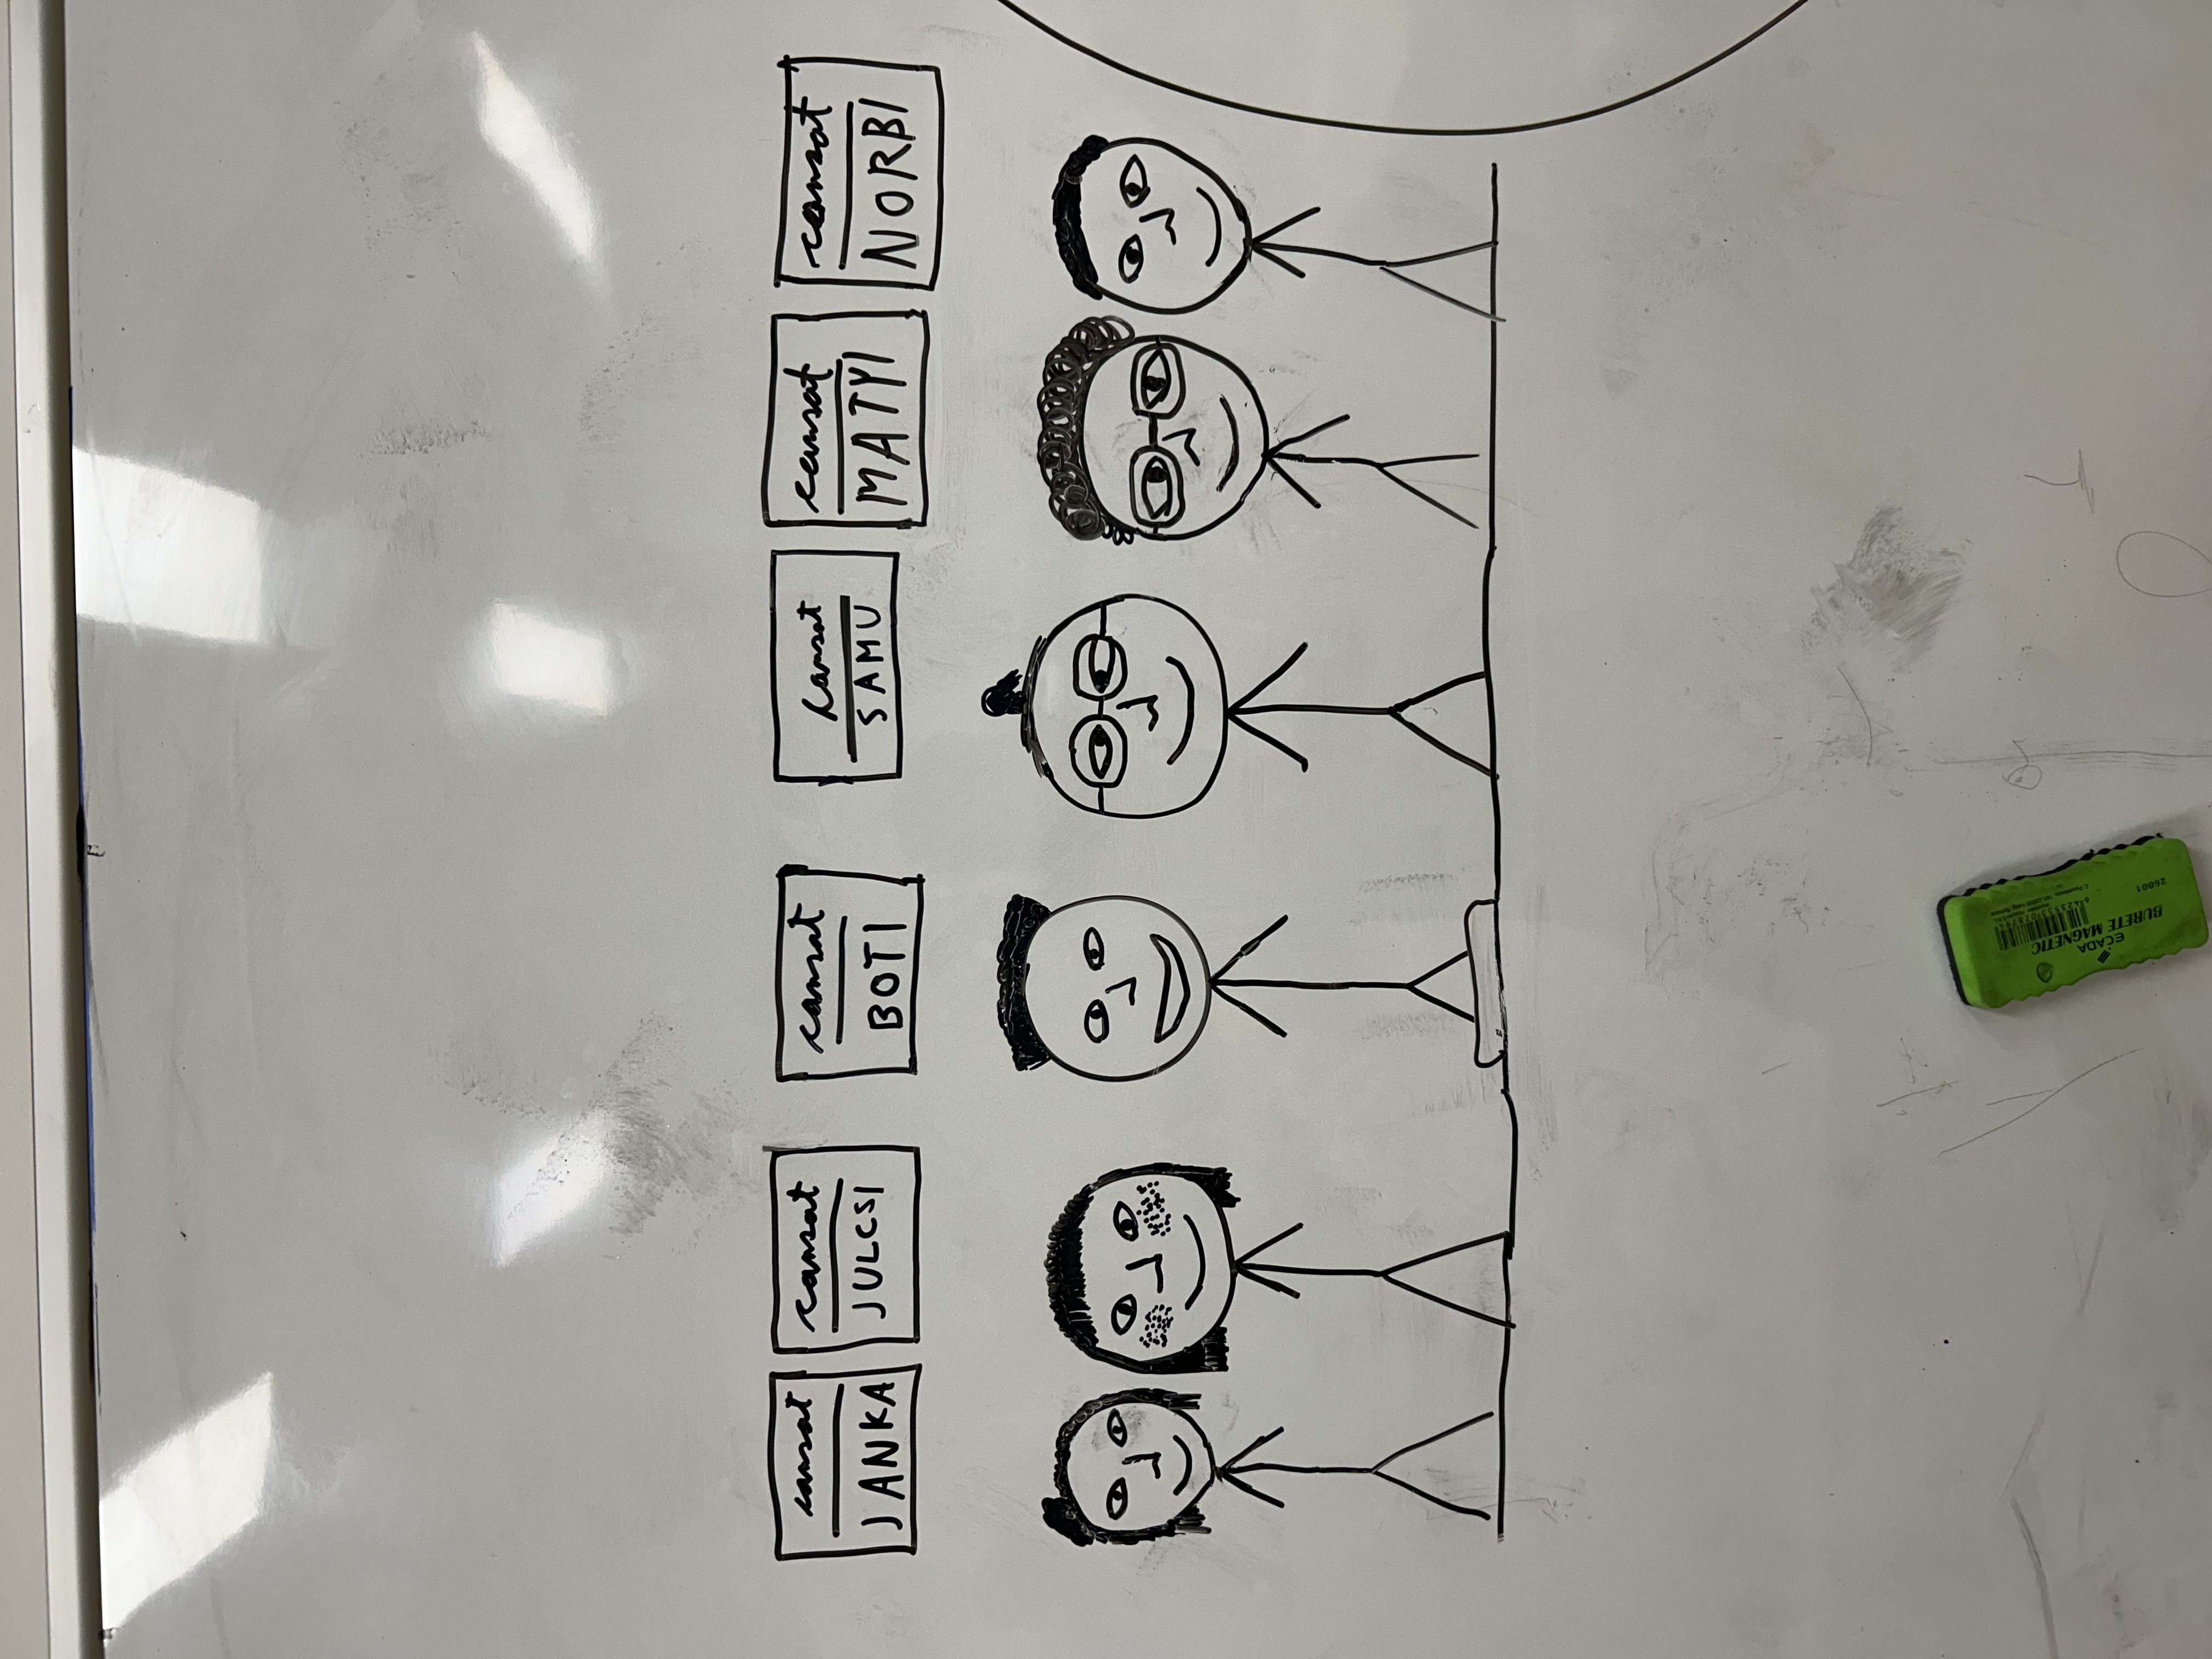 cansat
JANKA
cansat
JULCSI
cansat
BOTI
cansat
SAMU
cansat
MATYI
cansat
NORBI
ECADA
BURETE MAGNETIC
26001